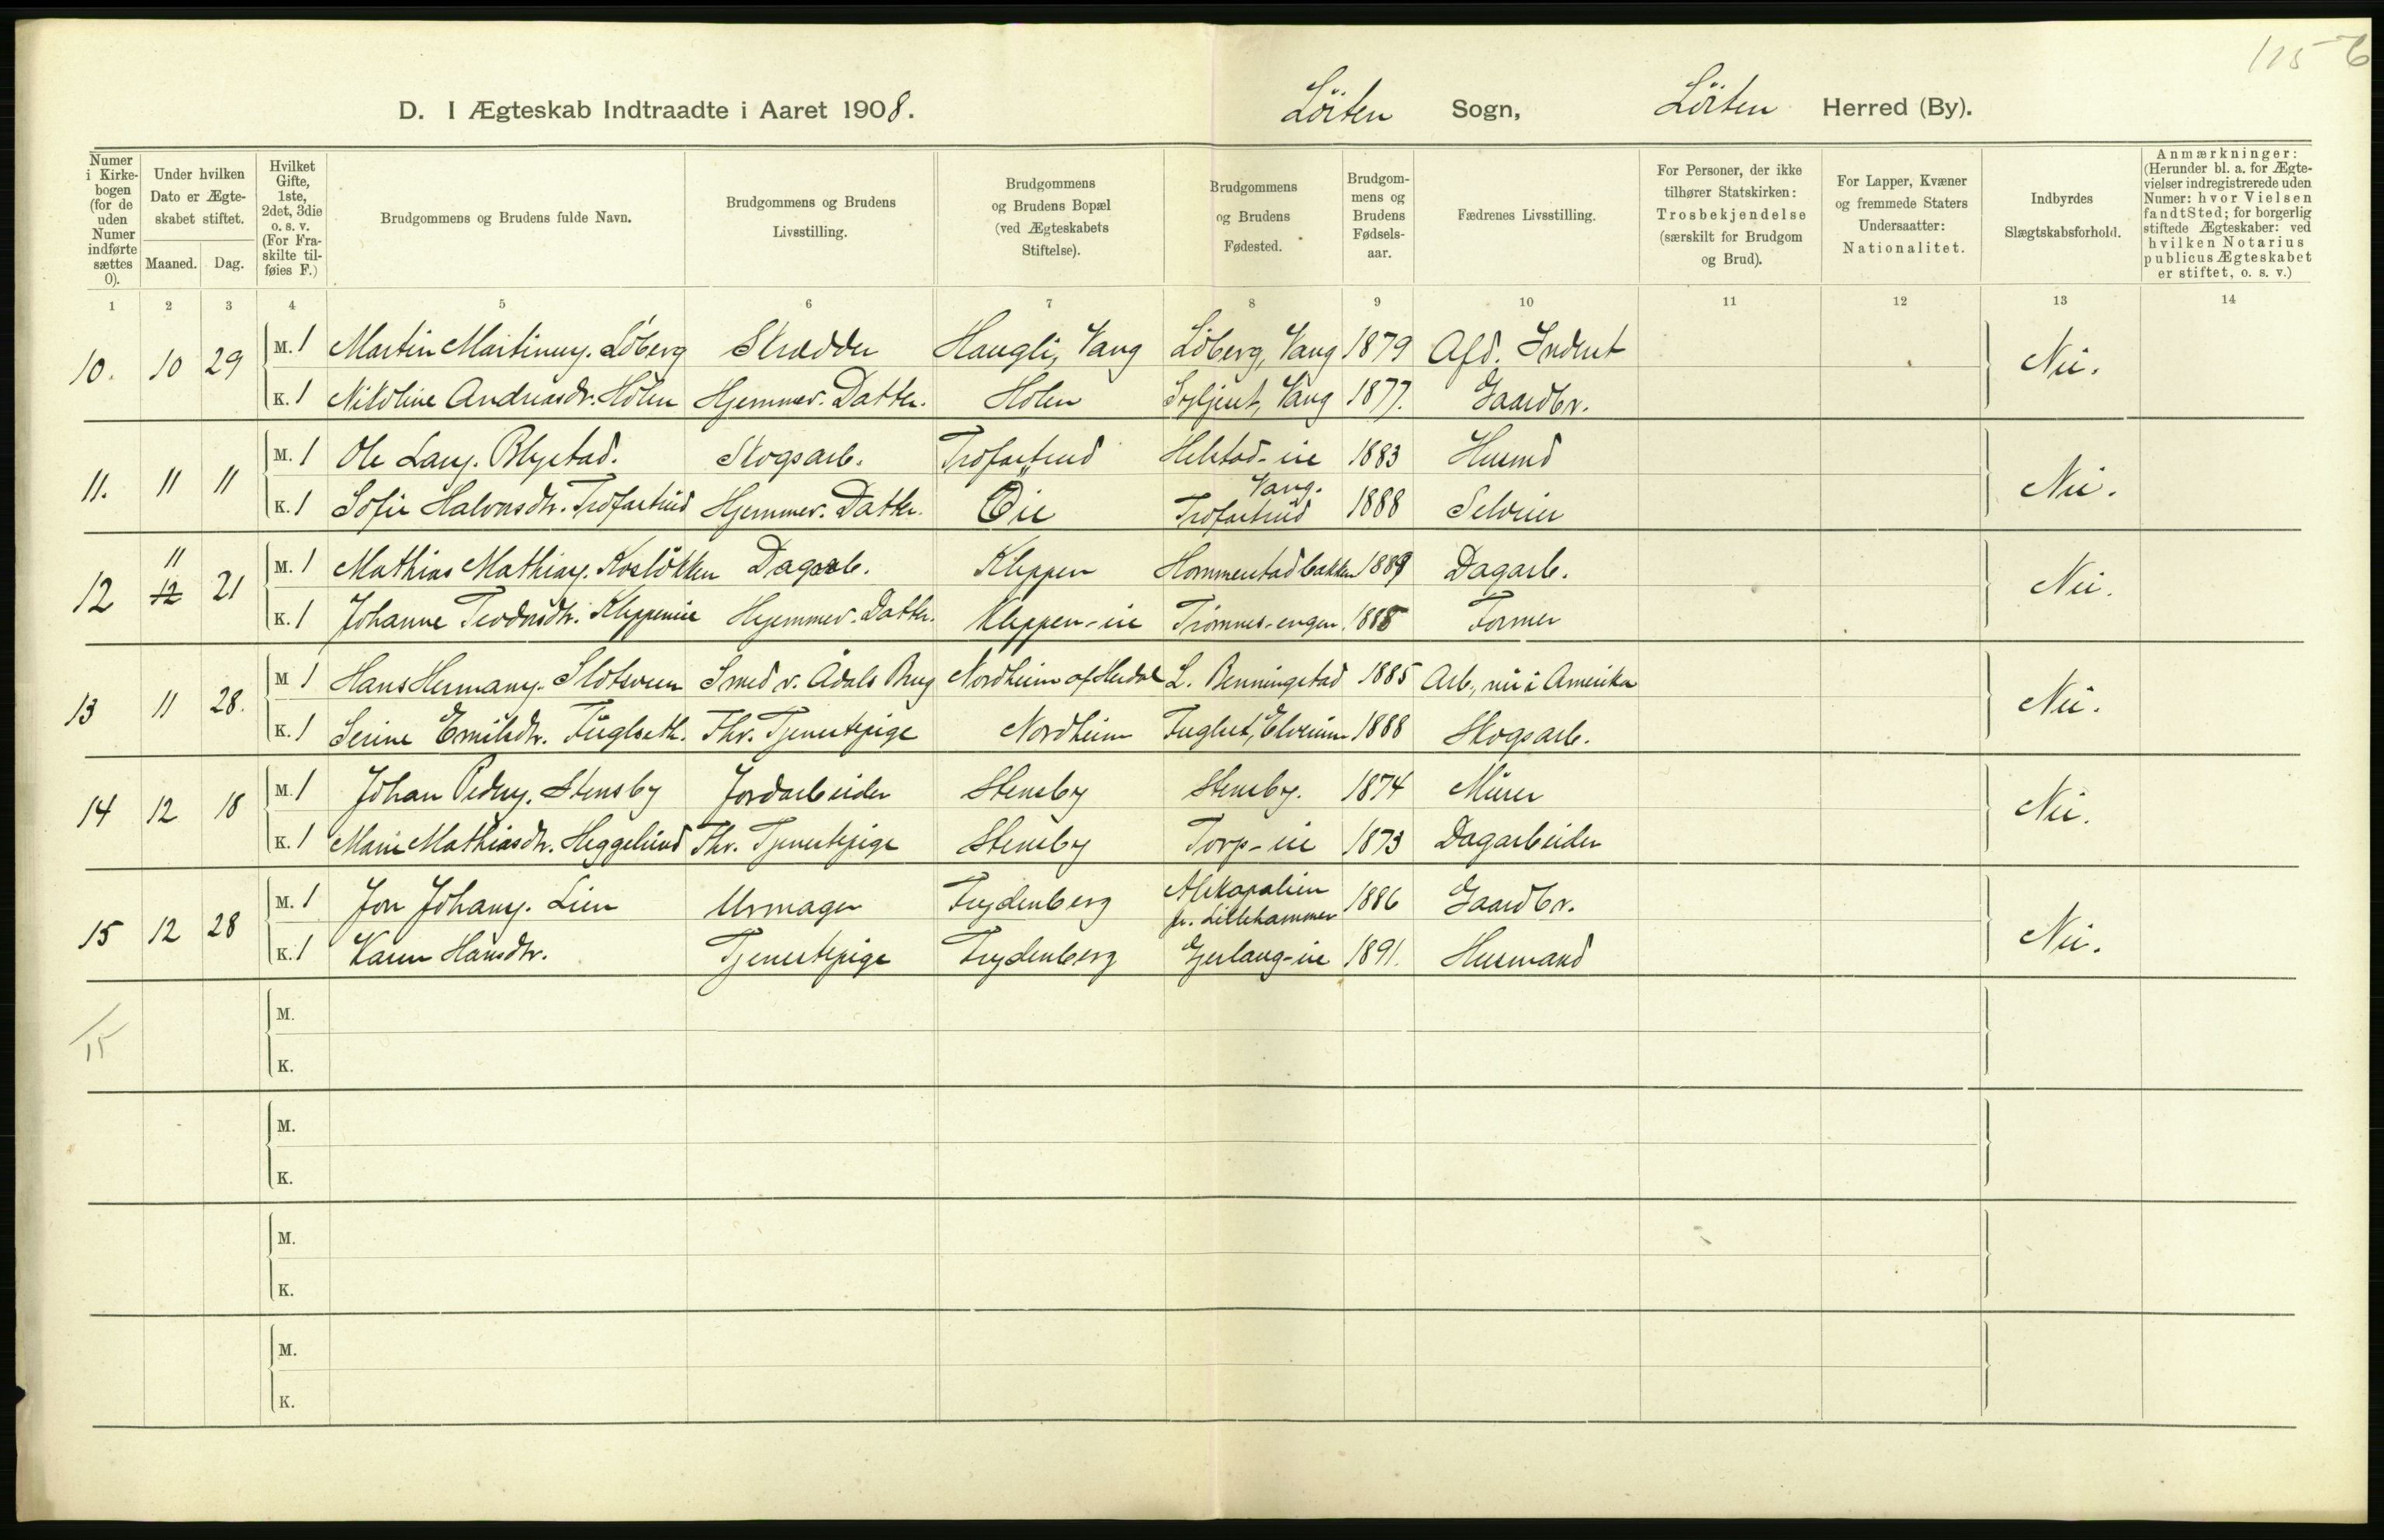 115 6
D. I Ægteskab Indtraadte i Aaret 1908. Löiten Sogn, Löiten Herred (By).
Numer i Kirke-bogen (for de uden Numer indførte sættes 0).
Under hvilken Dato er Ægte-skabet stiftet.
Maaned. Dag.
Hvilket Gifte, 1ste, 2det, 3die o. s. v. (For Fra-skilte til-føies F.)
Brudgommens og Brudens fulde Navn.
Brudgommens og Brudens Livsstilling.
Brudgommens og Brudens Bopæl (ved Ægteskabets Stiftelse).
Brudgommens og Brudens Fødested.
Brudgom-mens og Brudens Fødsels-aar.
Fædrenes Livsstilling.
For Personer, der ikke tilhører Statskirken: Trosbekjendelse (særskilt for Brudgom og Brud).
For Lapper, Kvæner og fremmede Staters Undersaatter: Nationalitet.
Indbyrdes Slægtskabsforhold.
Anmærkninger: (Herunder bl. a. for Ægte-vielser indregistrerede uden Numer: hvor Vielsen fandt Sted; for borgerlig stiftede Ægteskaber: ved hvilken Notarius publicus Ægteskabet er stiftet, o. s. v.)
1 2 3 4 5 6 7 8 9 10 11 12 13 14
10. 10 29 M. 1 Martin Martinus. Löberg Skrædder Haugli, Vang Löberg, Vang 1879 Afd. Inderst Nei.
K. 1 Nikoline Andreasdr. Holen Hjemmev. Datter. Holen Vang 1877. Gaardbr.
11. 11 11 M. 1 Ole Lars. Blystad. Skogsarb. Trofastrud Helstad-eie 1883 Husmd Nei.
Vang.
K. 1 Sofie Halvorsdtr. Trofastrud Hjemmev. Datter. Öie Trofastrud 1888 Selveier
12 11 12 21 M. 1 Mathias Mathias. Kosløkken Dagarb. Kleppen Hommerstadbakken 1889 Dagarb. Nei.
K. 1 Johanne Teodorsdtr. Kleppeneie Hjemmev. Datter. Kleppen-eie Trömnes-engen 1888 Former
13 11 28. M 1 Hans Hermans. Slotsveen Smed v. Ådals Brug Nordheim af L. Benningstad 1885 Arb., nu i Amerika Nei.
K. 1 Serine Emilsdtr. Fuglseth. Fhv. Tjenestepige Nordheim Fuglset, Elverum 1888 Skogsarb.
14 12 18 M. 1 Johan Peders. Stensby Jordarbeider Stensby Stensby. 1874 Murer Nei.
K. 1 Marie Mathiasdtr. Heggelund Fhv. Tjenestepige Stensby Torp-eie 1873 Dagarbeider
15 12 28 M. 1 Jon Johans. Lien Urmager Frydenberg 1886 Gaardbr. Nei.
pr. Lillehammer
K. 1 Karen Hansdtr. Tjenestepige Frydenberg Gjerlaug-eie 1891. Husmand
15
M.
K.
M.
K.
M.
K.
M.
K.